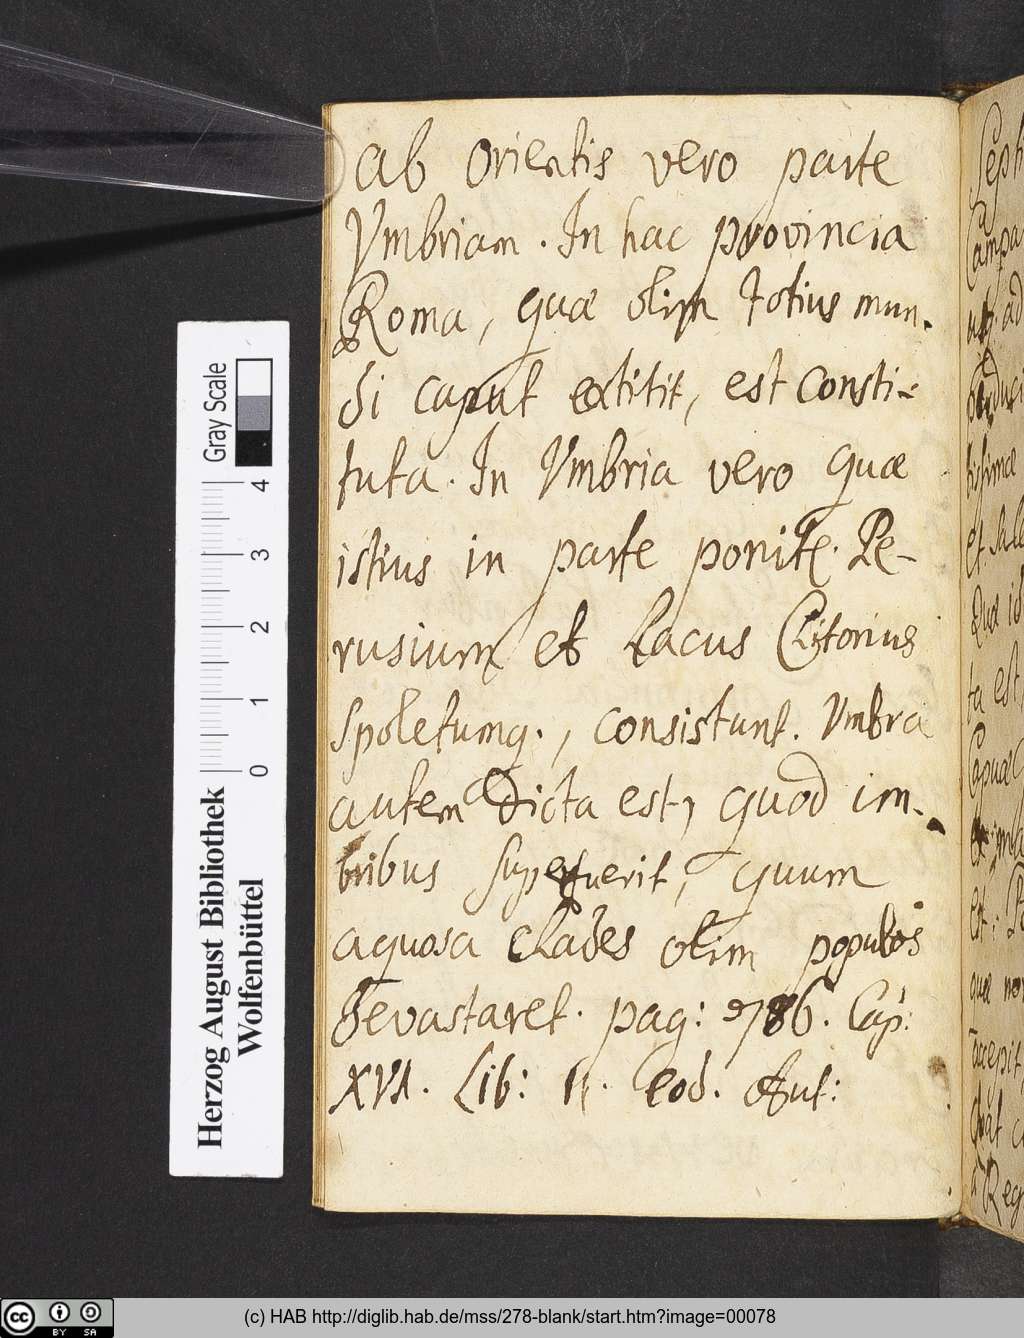 ab Orientis vero parte
Vmbriam. In hac provincia
Roma, quæ olim totius mun-
di caput extitit, est Consti-
tuta. In Vmbria vero quæ
istius in parte ponite. Pe-
rusium et Lacus Clitorius
Spoletumq., consistunt. Vmbra
autem Dicta est, quod im-
bribus superfuerit, quum
aquosa clades olim populos
devastaret. pag: 786. Cap:
XVI. Lib: II. eod. Aut:
Gray Scale
4
3
2
1
0
Herzog August Bibliothek
Wolfenbüttel
et
est
quæ
accepit
BY SA
(c) HAB http://diglib.hab.de/mss/278-blank/start.htm?image=00078